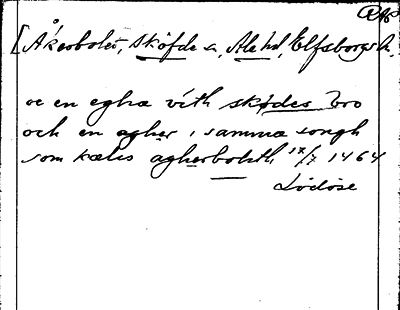 [Åkerbolet, Sköfde s., Ale hd, Elfsborgs l.
oc en eghæ vith skødes bro
och en agher i samma songh
som kæles agherboleth 17/7 1464
Lödöse